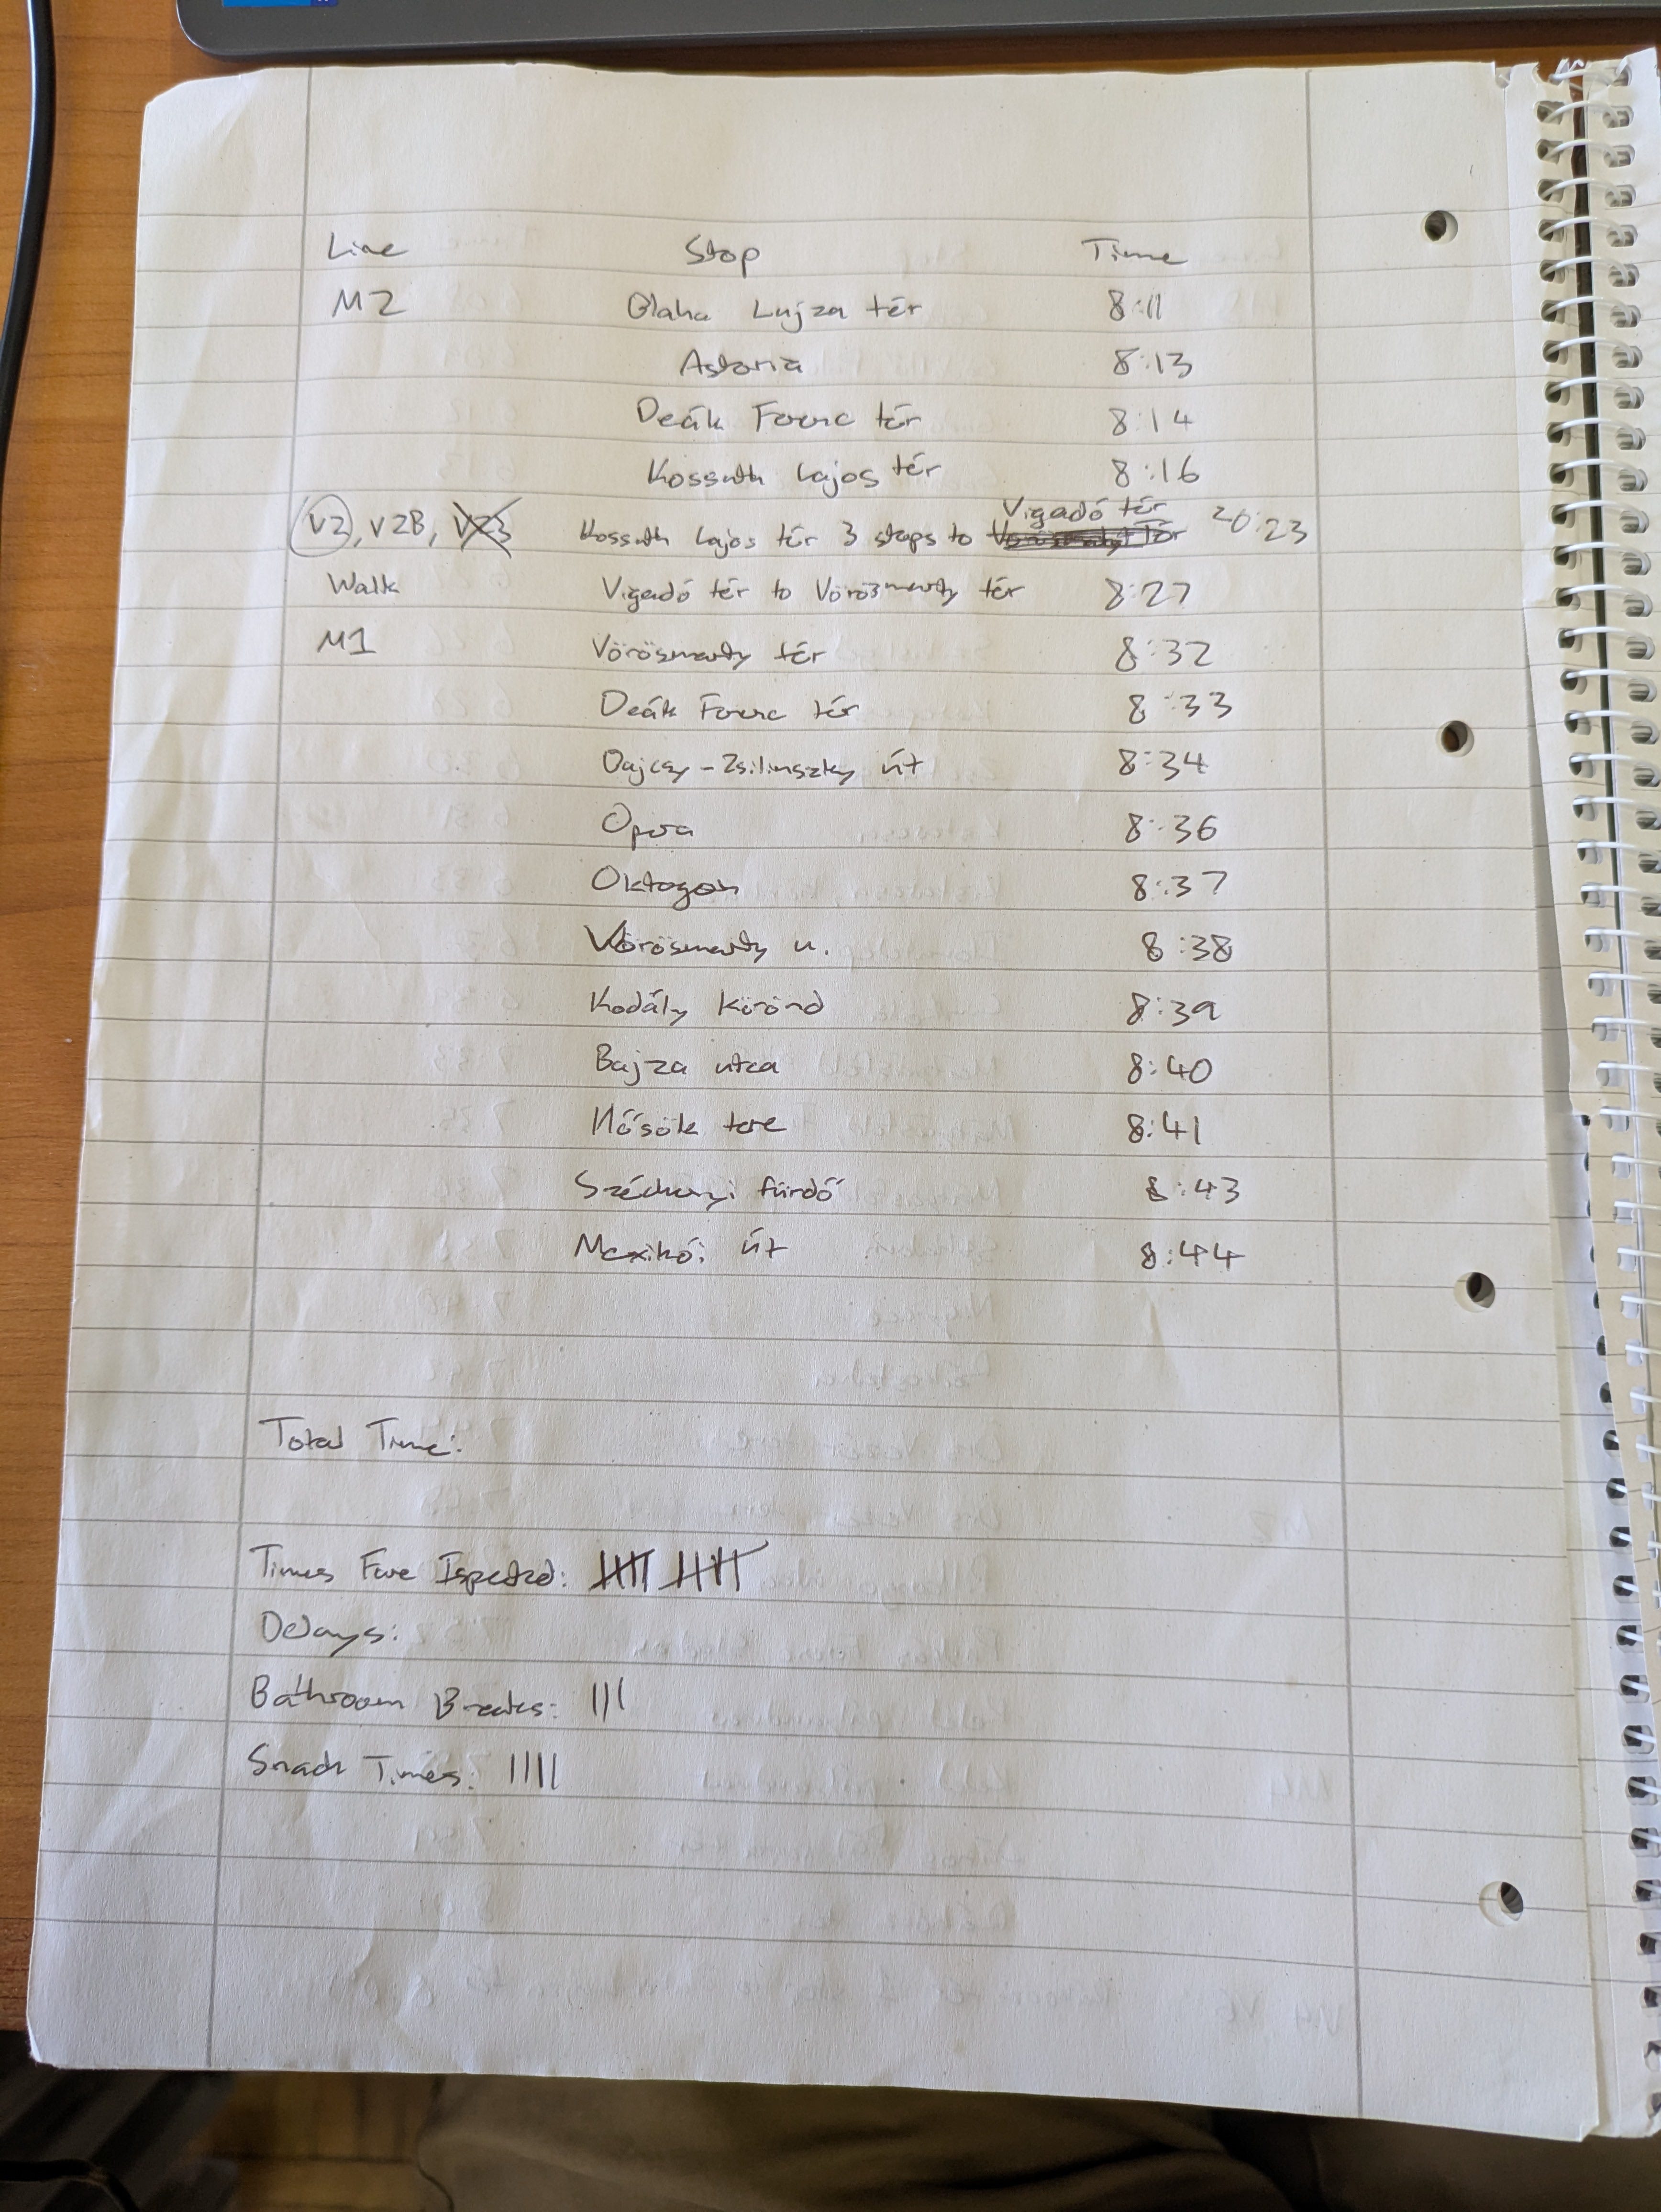 Line Stop Time
M2 Blaha Lujza tér 8:11
Astoria 8:13
Deák Ferenc tér 8:14
Kossuth Lajos tér 8:16
Vigadó tér
V2, V2B, V23 Kossuth Lajos tér 3 stops to Vörösmarty tér 20:23
Walk Vigadó tér to Vörösmarty tér 8:27
M1 Vörösmarty tér 8:32
Deák Ferenc tér 8:33
Bajcsy-Zsilinszky út 8:34
Opera 8:36
Oktogon 8:37
Vörösmarty u. 8:38
Kodály Körönd 8:39
Bajza utca 8:40
Hősök tere 8:41
Széchenyi fürdő 8:43
Mexikói út 8:44
Total Time:
Times Fare Ispected: 
Delays:
Bathroom Breaks: |||
Snack Times: ||||